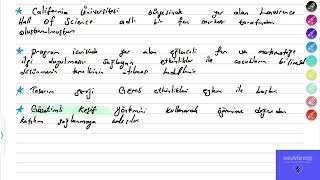 ★ California Üniversitesi bünyesinde yer alan Lawrence
Hall Of Science adlı bir fen merkezi tarafından
oluşturulmuştur
★ program içerisinde yer alan eğlenceli fen ve matematiğe
ilgi duyulmasını sağlayan etkinlikler ile çocukların bilimsel
düşünmenin temelinin atılması hedeflenir
★ Tasarım Gems etkinlikleri ile
★ Güdümlü Keşif yöntemini kullanarak öğrenime doğrudan
katılım sağlanmaya